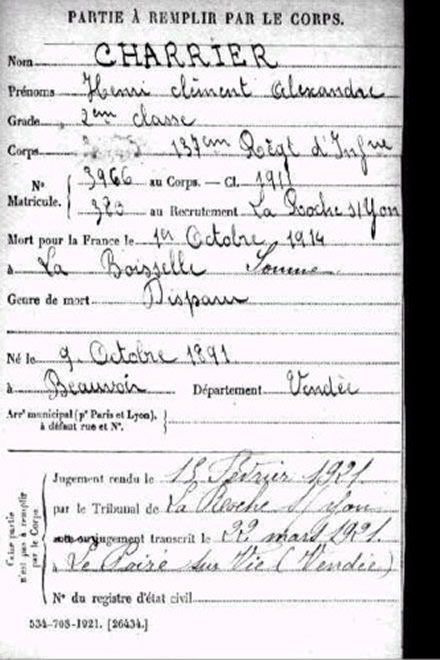 PARTIE À REMPLIR PAR LE CORPS.
Nom CHARRIER
Prénoms Henri Clément Alexandre
Grade 2ème classe
Corps 137ème Régt d'Infrie
Nº Matricule. 3966 au Corps. — Cl. 1911
383 au Recrutement La Roche s/Yon
Mort pour la France le 1er Octobre 1914
à La Boisselle Somme
Genre de mort Disparu
Né le 9 Octobre 1891
à Beauvoir Département Vendée
Arrt municipal (pr Paris et Lyon),
à défaut rue et Nº.
Cette partie
n'est pas à remplir
par le Corps.
Jugement rendu le 15 Février 1921
par le Tribunal de La Roche s/Yon
jugement transcrit le 22 mars 1921.
à Le Poiré sur Vie (Vendée)
Nº du registre d'état civil
534-708-1921. [26434.]